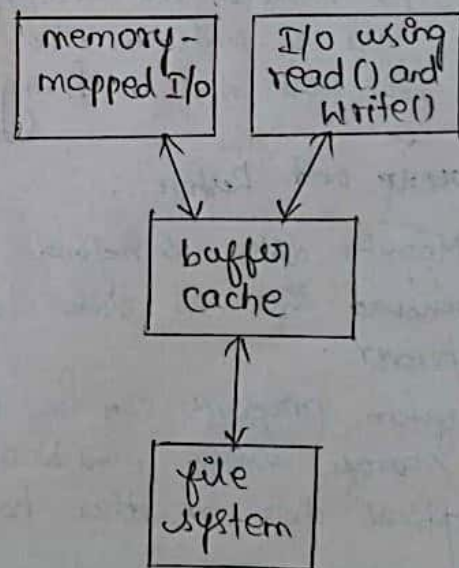 memory-
mapped I/o
I/o using
read () and
write()
buffer
cache
file
system